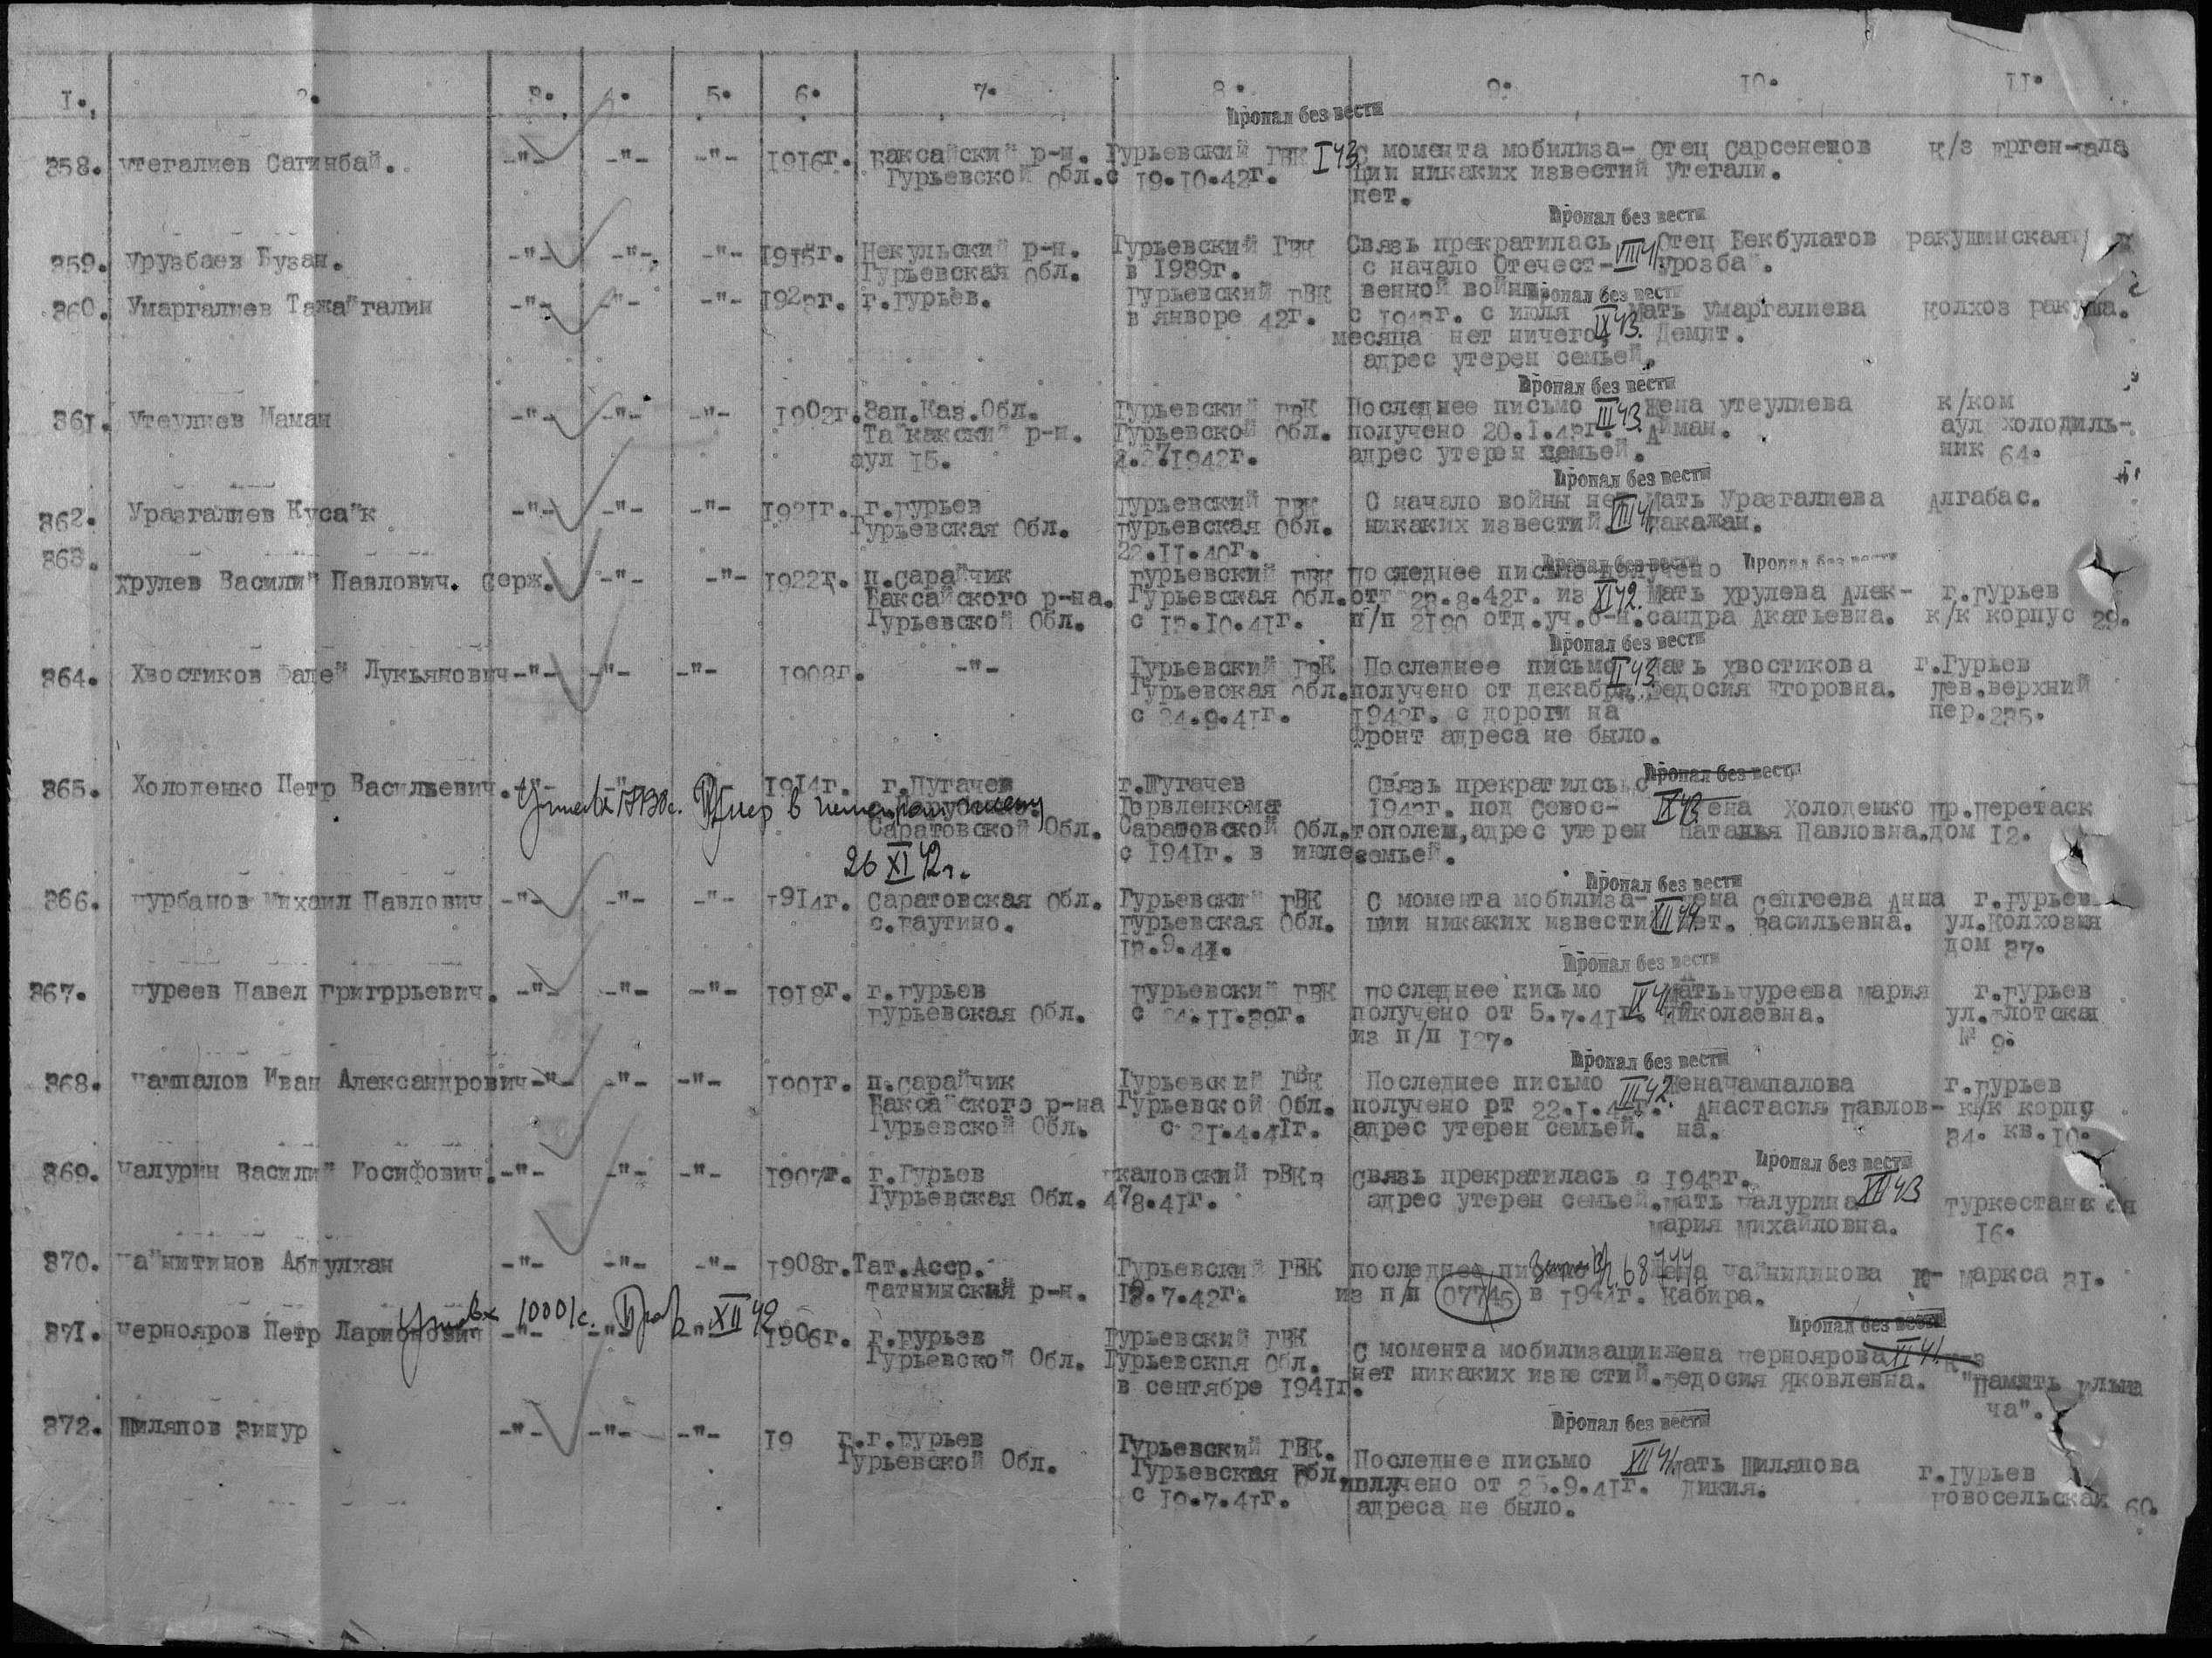 I. 2. 3. 4. 5. 6. 7. 8. 9. 10. II.
Пропал без вести
358. Утегалиев Сагинбай. -"- -"- -"- 1916г. Баксайский р-н. Гурьевский ГВК I 43 С момента мобилиза- Отец Сарсененов к/з
Гурьевской Обл. с 19.10.42г. ции никаких известий Утегали.
нет.
Пропал без вести
359. Урузбаев Бузан. -"- -"- -"- 1915г. Некульский р-н. Гурьевский ГВК Связь прекратилась VIII 41 Отец Бекбулатов ракушинская
Гурьевская Обл. в 1939г. с начало Отечест- Урозбай.
венной войны. Пропал без вести
360. Умаргалиев Тажайгалий -"- -"- -"- г.Гурьев. Гурьевский ГВК с июля Мать Умаргалиева Колхоз Ракуша.
в январе 42г. месяца нет ничего, IX 43. Демит.
адрес утерен семьей.
Пропал без вести
361. Утеулиев Маман -"- -"- -"- 1902г. Зап.Каз.Обл. Гурьевский ГВК Последнее письмо III 43 Жена Утеулиева к/ком
Тайкакский р-н. Гурьевской Обл. получено 20.I.43г. Айман. аул холодиль-
аул 15. 1942г. адрес утерен семьей. ник 64.
Пропал без вести
362. Уразгалиев Кусайк -"- -"- -"- 1921г. г.Гурьев Гурьевский ГВК С начало войны нет Мать Уразгалиева Алгабас.
Гурьевская Обл. Гурьевская Обл. никаких известий VIII 41 Макажан.
22.II.40г.
Пропал без вести Пропал без вести
363. Хрулев Василий Павлович. Серж. -"- -"- 1922г. п.Сарайчик Гурьевский ГВК Последнее письмо получено
Баксайского р-на. Гурьевская Обл. от 23.8.42г. из XI 42. Мать Хрулева Алек- г.Гурьев
Гурьевской Обл. с 13.10.41г. п/п 2190 отд.уч.б-н. сандра Акатьевна. к/к корпус 29.
Пропал без вести
364. Хвостиков Фадей Лукьянович -"- -"- -"- 1908г. -"- Гурьевский ГВК Последнее письмо II 43 Мать Хвостикова г.Гурьев
Гурьевская Обл. получено от декабря Федосия Егоровна. Лев.верхний
с 24.9.41г. 1942г. с дороги на пер.235.
фронт адреса не было.
365. Холоденко Петр Васильевич. 1914г. г.Пугачев г.Пугачев Связь прекратилсь с Пропал без вести
Умер в Горвленкомат 1942г. под Севос- IX 43 Жена Холоденко Пр.Перетаск
Саратовской Обл. Саратовской Обл. тополем, адрес утерен Наталья Павловна. дом 12.
с 1941г. в июле семьей.
26 XI 42г.
Пропал без вести
366. Чурбанов Михаил Павлович -"- -"- -"- 1914г. Саратовская Обл. Гурьевский ГВК С момента мобилиза- Жена Сергеева Анна г.Гурьев
с.Баутино. Гурьевская Обл. ции никаких известий XII 41. нет. Васильевна. ул.Колхозная
13.9.41. дом 37.
Пропал без вести
367. Чуреев Павел Григррьевич. -"- -"- -"- 1918г. г.Гурьев Гурьевский ГВК Последнее письмо Мать Чуреева Мария г.Гурьев
Гурьевская Обл. с 24.II.39г. получено от 5.7.41г. Николаевна. ул.Флотская
из п/п 127. № 9.
Пропал без вести
368. Чампалов Иван Александрович -"- -"- -"- 1901г. п.Сарайчик Гурьевский ГВК Последнее письмо III 42. Жена Чампалова г.Гурьев
Баксайского р-на Гурьевской Обл. получено рт 22.I.42г. Анастасия Павлов- к/к корпу
Гурьевской Обл. с 21.4.41г. адрес утерен семьей. на. 34. кв.10.
369. Чалурин Василий Иосифович. -"- -"- -"- 1907г. г.Гурьев Чкаловский РВК в Связь прекратилась с 1943г. Пропал без вести
Гурьевская Обл. 8.41г. адрес утерен семьей. Мать Чалурина XII 43 Туркестанская
Мария Михайловна. 16.
370. Чайнитинов Абдулхан -"- -"- -"- 1908г. Тат.Асср. Гурьевский ГВК последнее письмо Жена Чайнидинова К- Маркса 31.
Татнинский р-н. 12.7.42г. из п/п 07745 в 194 г. Кабира.
Пропал без вести
371. Чернояров Петр Ларионович -"- -"- -"- XII 42 1906г. г.Гурьев Гурьевский ГВК
Гурьевской Обл. Гурьевская Обл. С момента мобилизации Жена Черноярова VI 41. к-з
в сентябре 1941г. нет никаких известий. Федосия Яковлевна. "Память Ильи
ча".
Пропал без вести
372. Шиляпов Зинур -"- -"- -"- 19 г. г.Гурьев Гурьевский ГВК.
Гурьевской Обл. Гурьевская Обл. Последнее письмо XII 41. Мать Шиляпова г.Гурьев
с 10.7.41г. получено от 25.9.41г. Дикия. Новосельская 60.
адреса не было.